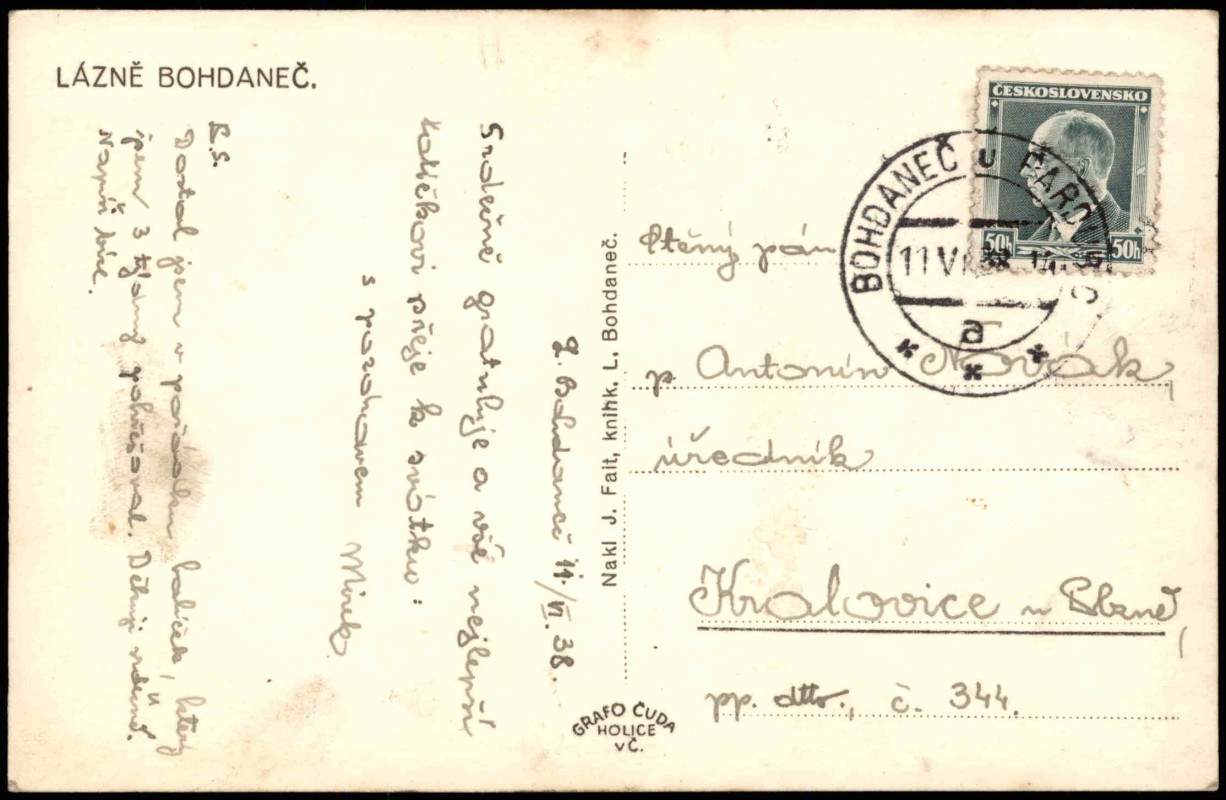 LÁZNĚ BOHDANEČ.
L. Bohdaneč 11./VI. 38.
Srdečně gratuluje a vše nejlepší
tatíčkovi přeje k svátku:
s pozdravem Mirek.
P.S.
Dostal jsem v pořádku balíček, který
jsem 3 týdny potřeboval. Děkuji
Napiš
Nakl J. Fait, knihk. L. Bohdaneč.
GRAFO ČUDA
HOLICE
v Č.
ČESKOSLOVENSKO
50h 50h
BOHDANEČ u PARDUBIC
11 VI
a
Ctěný pán
p Antonín Novák,
úředník
Kralovice u Plzně,
pp. dtto., č. 344.